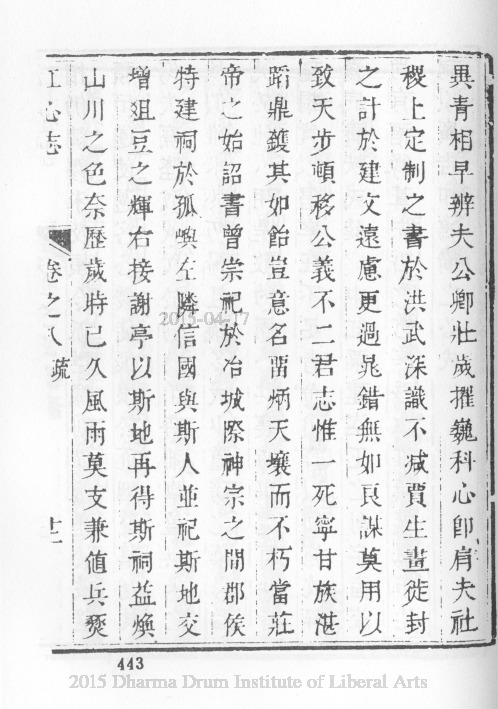 異青相早辨夫公卿壯歲擢巍科心卽肩夫社
稷上定制之書於洪武深識不減賈生畫徙封
之計於建文遠慮更過晁錯無如良謀莫用以
致天步頓移公義不二君志惟一死寧甘族湛
蹈鼎鑊其如飴豈意名畱炳天壤而不朽當莊
帝之始詔書曾崇祀於冶城際神宗之間郡侯
特建祠於孤嶼左隣信國與斯人並祀斯地交
增俎豆之輝右接謝亭以斯地再得斯祠益煥
山川之色奈歷歲時已久風雨莫支兼値兵燹
江心志 卷之八 疏 十二
443
2015-04-17
2015 Dharma Drum Institute of Liberal Arts